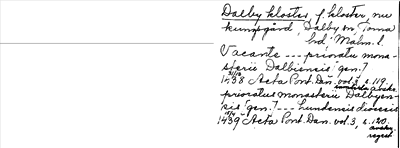 Dalby kloster, f. kloster, nu
kungsgård, Dalby sn Torna
hd Malm. l.
Vacante --- prioratu mona-
sterii Dalbiensis gen.?
31/10
1438 Acta Pont. Dan. vol. 3, s. 119.
avskr.
prioratus monasterii Dalbyen-
sis gen.? --- Lundensis diocesis
1439 Acta Pont. Dan. vol. 3, s. 120.
avskr.
regest